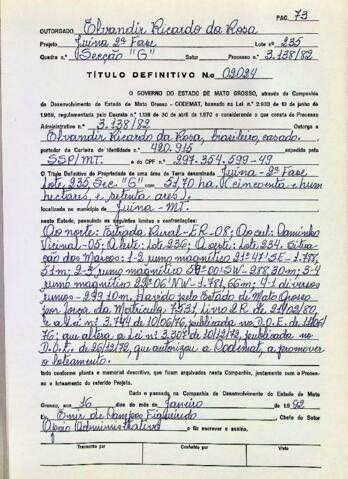 PAG. 73
OUTORGADO Elvandir Ricardo da Rosa
Projeto Juina 2ª Fase Lote nº 235
Quadra n.º Secção "G" Setor Processo n.º 3.138/82
TÍTULO DEFINITIVO N.o 02024
O GOVERNO DO ESTADO DE MATO GROSSO, através da Companhia
de Desenvolvimento do Estado de Mato Grosso - CODEMAT, baseado na Lei N.º 2.933 de 13 de junho de
1969, regulamentada pelo Decreto N.º 1.138 de 30 de abril de 1970 e considerando o que consta do Processo
Administrativo n.º 3.138/82 Outorga a
Elvandir Ricardo da Rosa, brasileiro, casado.
portador da Carteira de Identidade n.º 420.915 expedida pela
SSP/MT. e do CPF nº 297.354.599-49
O Título Definitivo de Propriedade de uma área de Terra denominada Juina-2ª Fase
Lote 235 Sec "G" com 51,70 ha (cinconta e hum
hectares, e setenta ares).
localizada no município de Juina-MT.
neste Estado, possuindo os seguintes limites e confrontações:
Ao norte: Estrada Rural-ER-08; Ao sul: Caminho
Vicinal-05; A leste: Lote 236; A oeste: Lote 234. Situa-
ção dos Marcos: 1-2 rumo magnético 21º47'SE-1.788,
51m; 2-3 rumo magnético 58º00'SW-288,30m; 3-4
rumo magnético 22º06'NW-1.781,66m; 4-1 diversos
rumos-299,10m. Havido pelo Estado de Mato Grosso
por força da Matrícula 7.531, livro 2R de 21/02/80,
e a lei nº 3.744 de 10/06/76, publicada no D.O.E. de 11/06/
76; que altera a Lei nº 3.307 de 10/12/72, publicada no
D.O.E. de 26/12/72, que autorizou a Codemat, a promover
o loteamento.
tudo conforme planta e memorial descritivo, que ficam arquivados nesta Companhia, juntamente com o Processo
e o loteamento do referido Projeto.
Dado e passado na Companhia de Desenvolvimento do Estado de Mato
Grosso, aos 16 dias do mês de Janeiro de 1.992
Eu, Enir de Campos Figueiredo Chefe do Setor
Apoio Administrativo o fiz escrever e assino,
Transcrito por Conferido por Visto